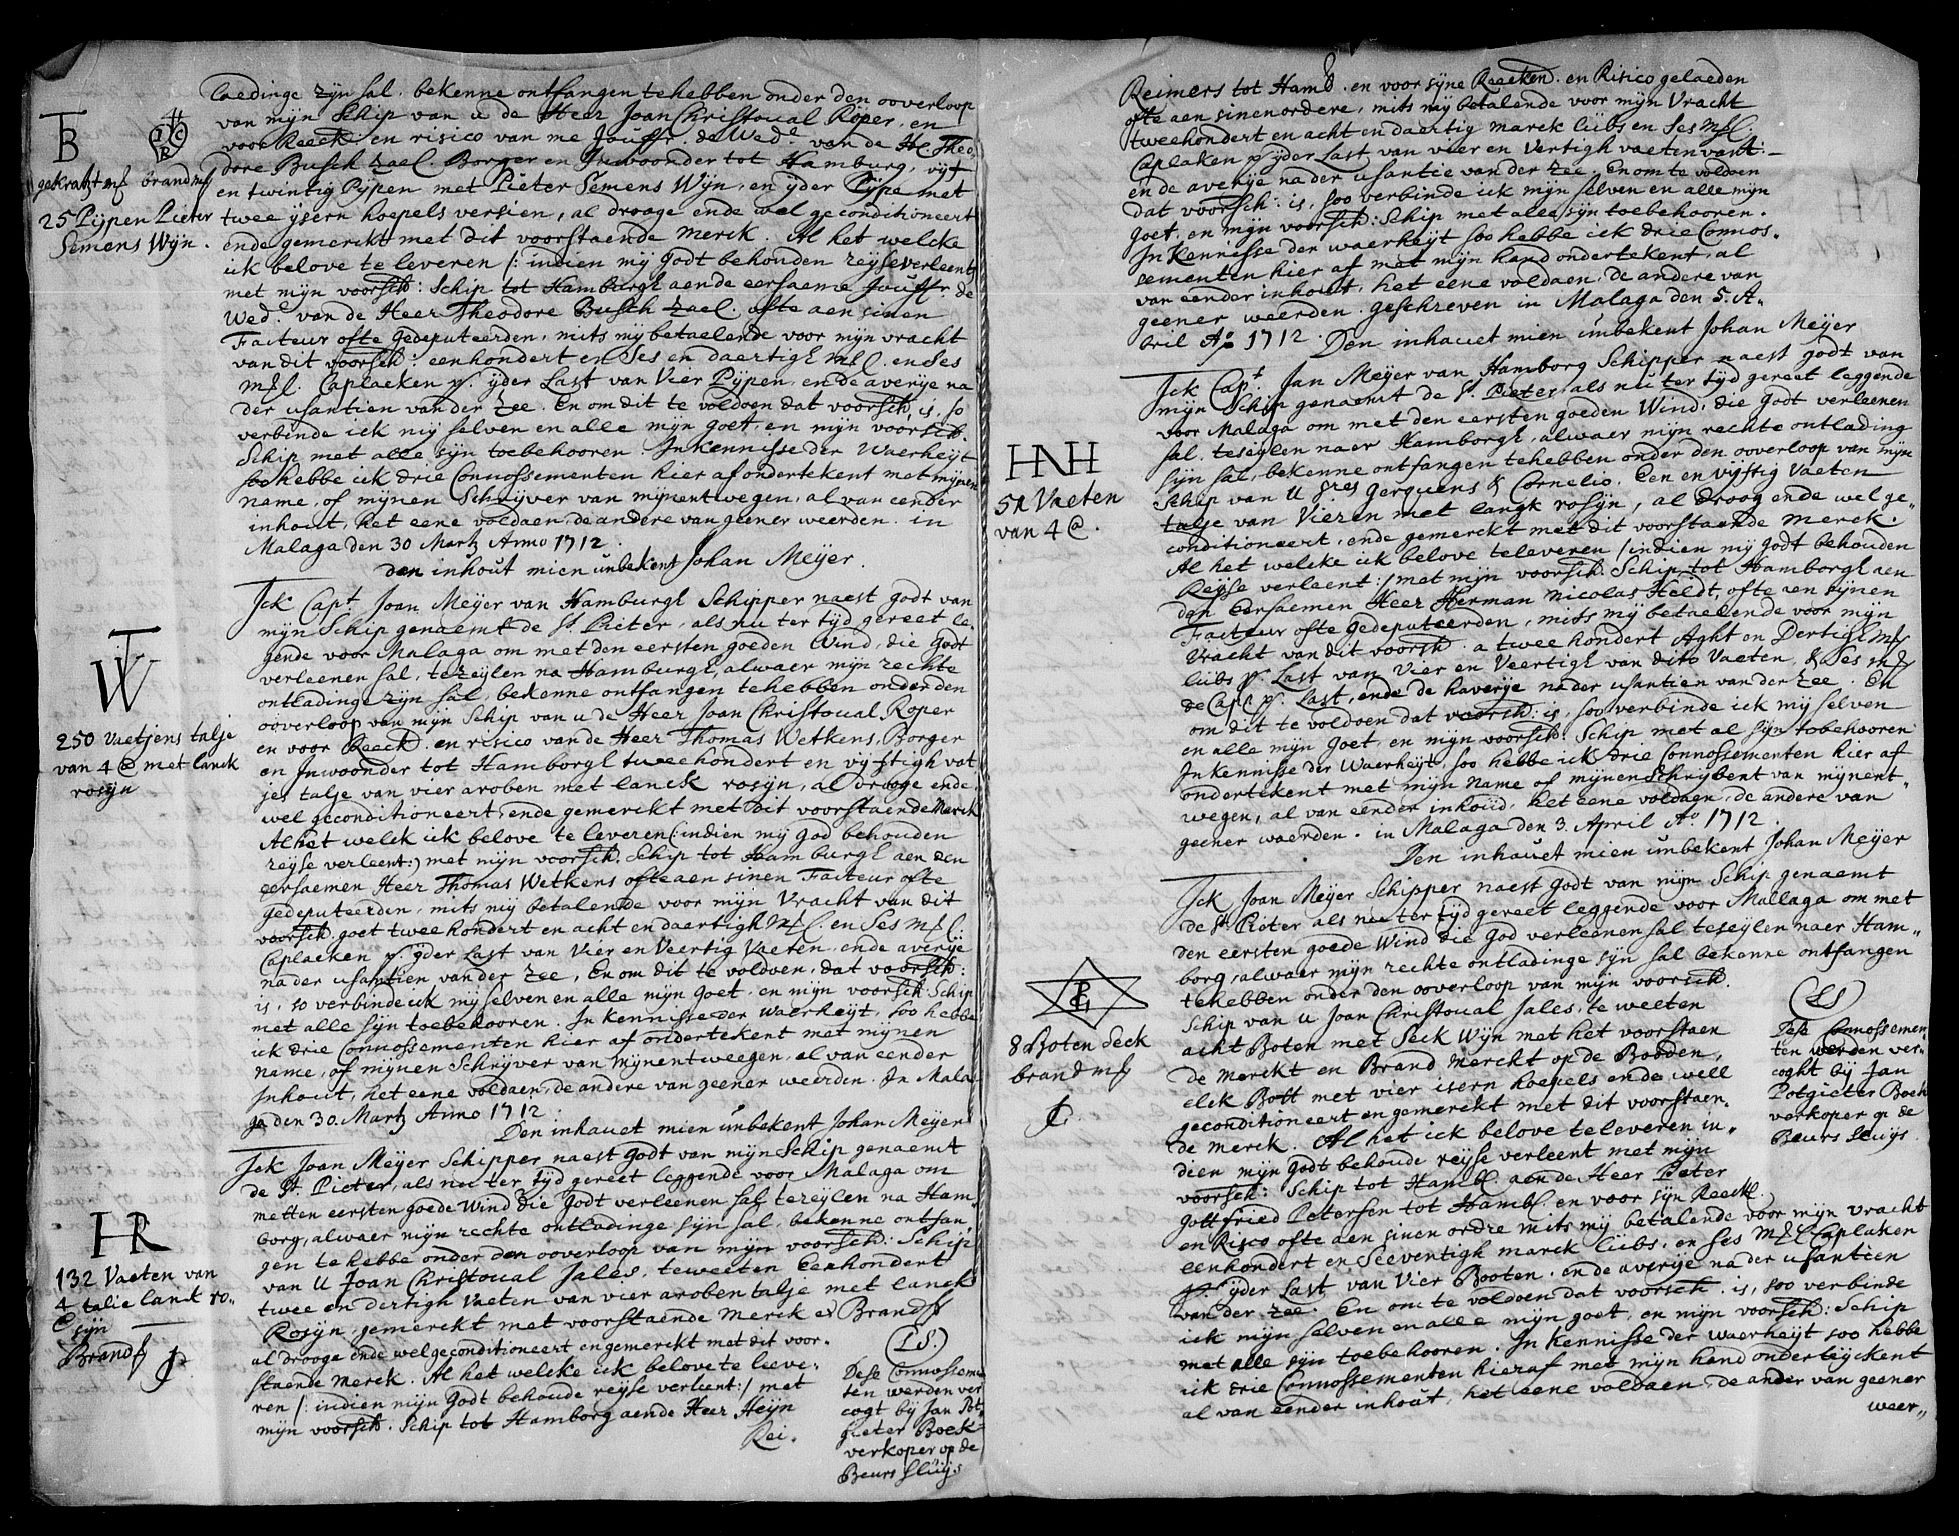 TB
gekratzt ms brand ms
25 Pijpen Pieter
Semens Wijn.
laedinge zijn sal. bekenne ontfangen te hebben onder den ooverloop
van mijn Schip van u de Heer Joan Christoual Roper, en
voor Reeck. en risico van me Jouffr. de Wed.e van de Hr. Theo-
dore Busch zael. Borger en Inwoonder tot Hamburg, vijf
en twintig Pijpen met Pieter Semens Wijn, en ijder Pijpe met
twee ijsern hoepels versien, al drooge ende wel geconditioneert
ende gemerckt met dit voorstaende merck. Al het welcke
ick belove te leveren /: indien mij godt behouden reijse verleent
met mijn voorsch: Schip tot Hamburgh aende eersaeme Jouffr. de
Wed.e van de Heer Theodore Busch zael. ofte aen sinen
Facteur ofte gedeputeerden, mits mij betaelende voor mijn vracht
van dit voorsch: eenhondert en Ses en daertigh mfl. en Ses
mfl. Caplaeken p. ijder Last van Vier Pijpen, en de averije na
der usantien van der Zee. En om dit te voldoen dat voorsch. is, so
verbinde ick mij selven en alle mijn goet, en mijn voorsch.
Schip met alle sijn toebehooren. In kennisse der Waerheijt
soo hebbe ick drie Connossementen hier af ondertekent met mijnen
name, of mijnen Schrijver van mijnentwegen, al van eender
inhout, het eene voldaen, de andere van geener weerden. in
Malaga den 30 Martz Anno 1712.
den inhout mien unbekent Johan Meijer.
TW
250 vaetjens talje
van 4 @ met lanck
rosijn
Ick Capt. Joan Meijer van Hamburgh Schipper naest godt van
mijn Schip genaemt de St. Pieter, als nu ter tijd gereet le,
gende voor Malaga om met den eersten goeden Wind, die godt
verleenen sal, te zeijlen na Hamburgh, alwaer mijn rechte
ontladinge zijn sal, bekenne ontfangen te hebben onder den
ooverloop van mijn Schip van u de Heer Joan Christoual Roper
en voor Reeck. en risico van de Heer Thomas Wetkens, Borger
en Inwoonder tot Hamborgh tweehondert en vijftigh vat
jes talje van vier aroben met lanck rosijn, al drooge ende
wel geconditioneert, ende gemerckt met dit voorstaende Merck
Al het welck ick belove te leveren (: indien mij god behouden
reijse verleent:) met mijn voorsch. Schip tot Hamburgh aen den
eersaemen Heer Thomas Wetkens ofte aen sinen Facteur ofte
gedeputeerden, mits mij betalende voor mijn Vracht van dit
voorsch. goet twee hondert en acht en daertigh mfl. en Ses mfl.
Caplaeken p. ijder Last van Vier en Veertig Vaeten, ende averije
na der usantien van der Zee, En om dit te voldoen, dat voorsch:
is, so verbinde ick mij selven en alle mijn goet, en mijn voorsch. Schip
met alle sijn toebehooren. In kennisse der waerheijt, soo hebbe
ick drie Connossementen hier af ondertekent met mijnen
name, of mijnen Schrijver van Mijnentweegen, al van eender
Inhout, het eene voldaen, de andere van geener weerden. In Mala
ga den 30. Martz Anno 1712.
Den inhauet mien unbekent Johan Meijer
HR
132 Vaeten van
4 talie lanck ro„
@ sijn
Brand ms
Ick Joan Meijer Schipper naest godt van mijn Schip genaemt
de St. Pieter, als nu ter tijd gereet leggende voor Malaga om
met ten eersten goede Wind die godt verleenen sal te zeijlen na Ham
borg, alwaer mijn rechte ontladinge sijn sal, bekenne ontfan,
gen te hebbe onder den ooverloop van mijn voorsch: Schip
van U Joan Christoual Jales, te weeten Eenhondert
twee en dertigh Vaeten van vier aroben talje met lanck
Rosijn, gemerckt met voorstaende Merck ed Brand ms
al drooge ende wel geconditioneert en gemerckt met dit voor-
staende merck. Al het welcke ick belove te leeve-
ren /: indien mijn godt behoude reijse verleent:/ met
mijn voorsch. Schip tot Hamborg aende Heer Heijn
Rei.
(LS.)
Dese Connosseme
ten werden ver
cogt bij Jan Pot,
gieter Boek-
verkoper op de
Beurs Sluijs
Reimers tot Hamb. en voor sijne Reeken. en Risico gelaeden
ofte aen sinen ordere, mits mij betalende voor mijn Vracht
tweehondert en acht en daertig marck lubs en Ses mfl.
Caplaken p. ijder Last van veer en Vertigh vaeten vant:
en de averije na der usantie van der Zee. En om te voldoen
dat voorsch: is, soo verbinde ick mijn selven en alle mijn
goet, en mijn voorsch: Schip met alle sijn toebehooren.
In Kennisse den waerheijt soo hebbe ick drie Connos-
sementen hier af met mijn hand ondertekent, al
van eender inhout, het eene voldaen, de andere van
geener weerden. geschreven in Malaga den 5. A-
bril Ao. 1712. Den inhauet mien unbekent Johan Meijer
HNH
51 Vaeten
van 4 @.
Ick Capt. Jan Meijer van Hamborg Schipper naest godt van
mijn Schip genaemt de St. Pieter, als nu ter tijd gereet leggende
voor Malaga om met den eersten goeden Wind, die godt verleenen
sal, te seijlen naer Hamborgh, alwaer mijn rechte ontlading
sijn sal, bekenne ontfangen te hebben onder den ooverloop van mijn
Schip van U Sres Gerquens & Cornelio. Een en vijftig Vaeten
talje van Vieren met langk rosijn, al droog ende wel ge-
conditioneert, ende gemerckt met dit voorstaende merck.
Al het welcke ick belove te leveren /: indien mij godt behouden
Reijse verleent:/ met mijn voorsch. Schip tot Hamborgh aen
den Eersaemen Heer Herman Nicolas Heldt, ofte aen sijnen
Facteur ofte gedeputeerden, mits mij betaelende voor mijn
Vracht van dit voorsch. a twee hondert Aght en Dertigh mfl
lubs p. Last van Vier en Veertigh van dito Vaeten, & Ses mfl
de Capl. p. Last, ende de haverije na der usantien van der Zee. En
om dit te voldoen dat voorsch: is, soo verbinde ick mij selven
en alle mijn goet, en mijn voorsch: Schip met al sijn tobehooren
In kennisse der Waerheijt, soo hebbe ick drie Connossementen hier af
ondertekent met mijn name of mijnen Schrijbent van mijnent-
wegen, al van eenden inhoud, het eene voldaen, de andere van
geener waerden. in Malaga den 3. April Ao. 1712.
Den inhauet mien unbekent Johan Meijer
PG
8 Boten Seck
brand ms
Ick Joan Meijer Schipper naest godt van mijn Schip genaemt
de St. Pieter als nu ter tijd gereet leggende voor Mallaga om met
den eersten goede Wind die God verleenen sal te seijlen naer Ham„
borg, alwaer mijn rechte ontladinge sijn sal bekenne ontfangen
te hebben onder den ooverloop van mijn voorsch.
Schip van U Joan Christoual Jales, te weeten
acht Boten met Seck Wijn met het voorstaen
de Merckt en Brand Merckt op de Booden,
elck Bott met vier isern hoepels ende well
geconditioneert en gemerckt met dit voorstaen-
de merck. Al het ick belove te leveren in„
deen mijn godt behoude reijse verleent met mijn
voorsch: Schip tot Hamb. aende Heer Peter
Gottfried Petersen tot Hamb. en voor sijn Reeck.
en Risco ofte aen sinen ordre mits mij betalende voor mijn vracht
eenhondert en Seeventigh marck lubs, en ses mfl Caplaken
p. ijder Last van Vier Booten, en de averije na der usantien
van der Zee. En om te voldoen dat voorsch. is, soo verbinde
ick mijn selven en alle mijn goet, en mijn voorsch: Schip
met alle sijn toebehooren. In kennisse der waerheijt soo hebbe
ick drie Connossementen hieraf met mijn hand onderteijckent
al van eender inhout, het eene voldaen, de ander van geener
weer„
(LS)
Dese Connossemen
ten werden ver-
coght bij Jan
Potgieter Boek
verkoper op de
Beurs Sluijs.